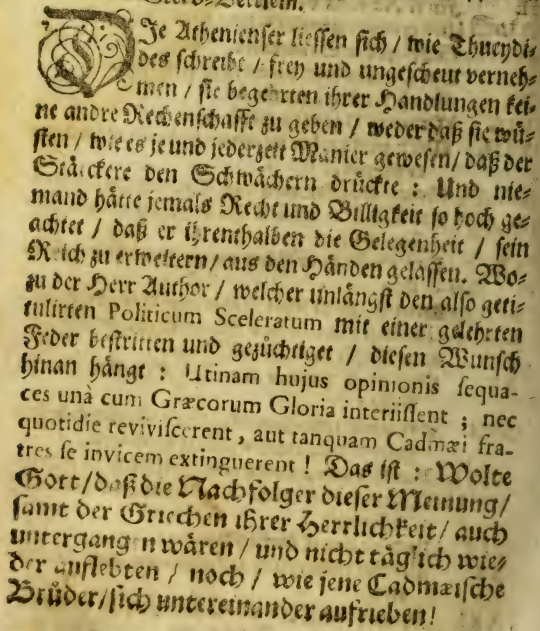 DIe Athenienser liessen sich / wie Thucydi-
des schreibt / frey und ungescheut verneh-
men / sie begehrten ihrer Handlungen kei-
ne andre Rechenschafft zu geben / weder daß sie wü-
sten / wie es je und jederzeit Manier gewesen / daß der
Stärckere den Schwächern drückte : Und nie-
mand hätte jemals Recht und Billigkeit so hoch ge-
achtet / daß er ihrenthalben die Gelegenheit / sein
Reich zu erweitern / aus den Händen gelassen. Wo-
zu der Herr Author / welcher unlängst den also geti-
tulirten Politicum Sceleratum mit einer gelehrten
Feder bestritten und gezüchtiget / diesen Wunsch
hinan hängt : Utinam hujus opinionis sequa-
ces unà cum Græcorum Gloria interiissent ; nec
quotidie reviviscerent , aut tanquam Cadmæi fra-
tres se invicem extinguerent ! Das ist : Wolte
Gott / daß die Nachfolger dieser Meinung /
samt der Griechen ihrer Herrlichkeit / auch
untergang n wären / und nicht täglich wie-
der auflebten / noch / wie jene Cadmæische
Brüder / sich untereinander aufrieben !